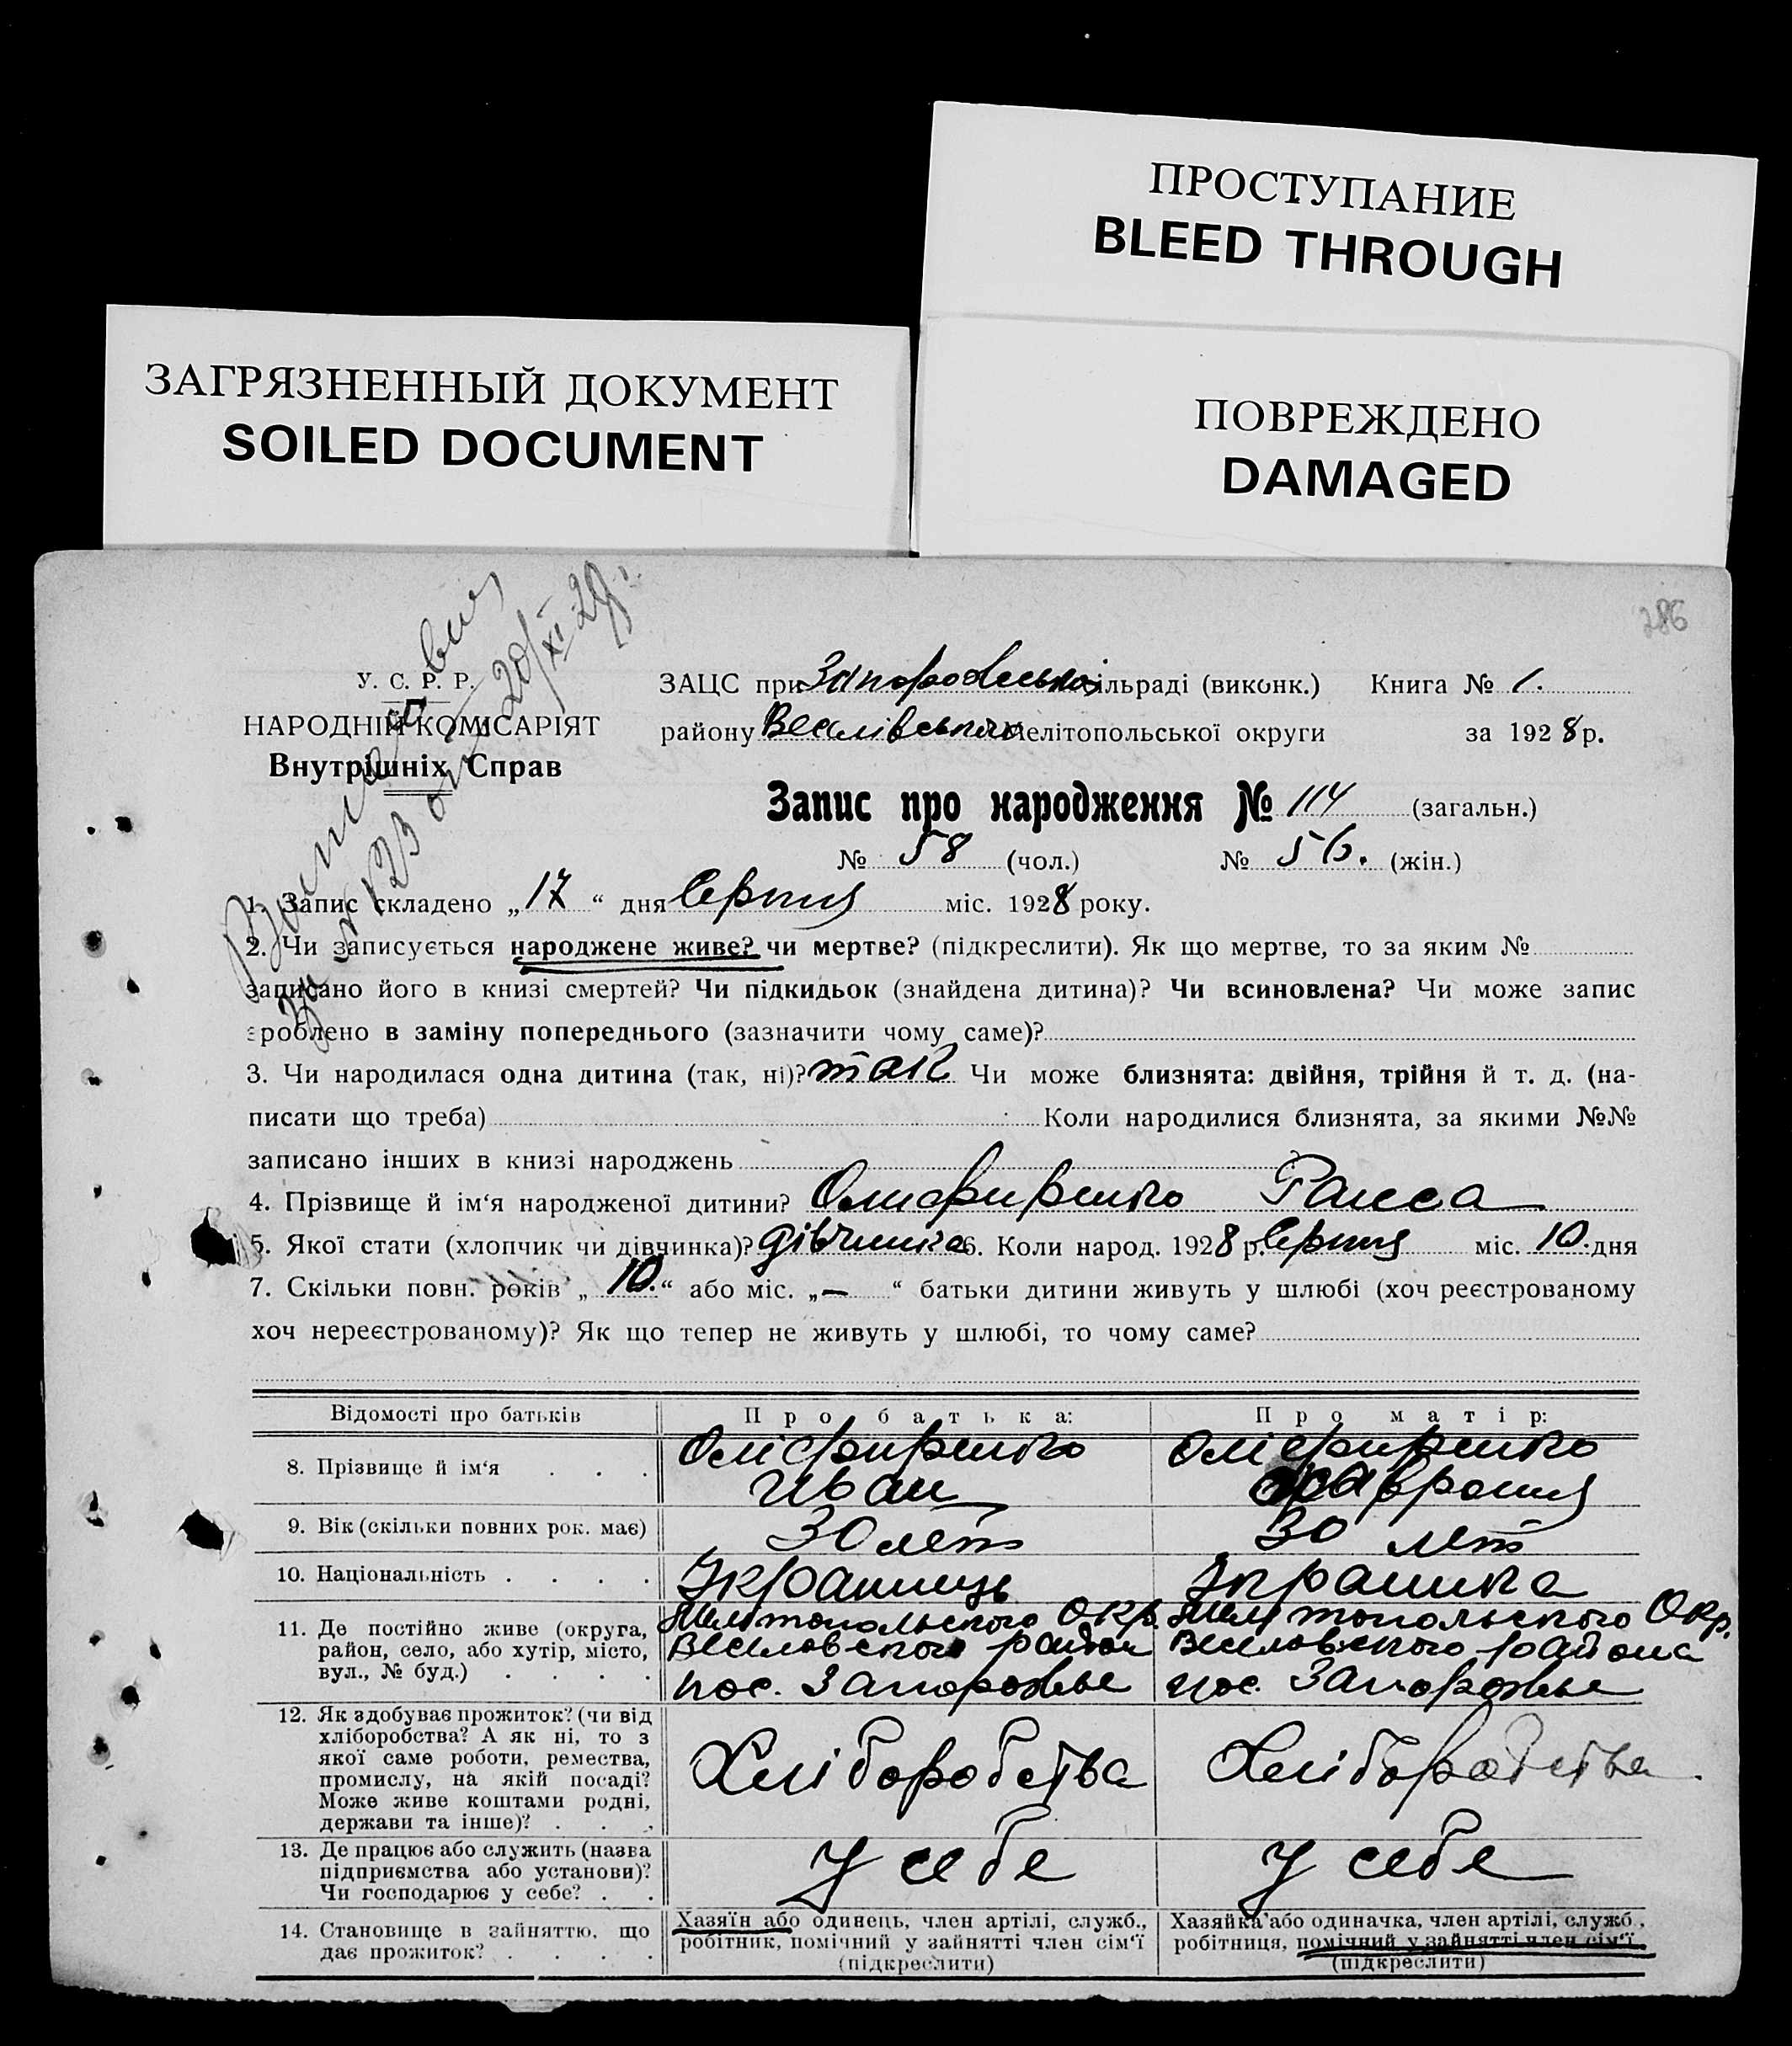 ПРОСТУПАНИЕ
BLEED THROUGH
ЗАГРЯЗНЕННЫЙ ДОКУМЕНТ
SOILED DOCUMENT
ПОВРЕЖДЕНО
DAMAGED
286
за № 123 от 20/XI 29 г.
У. С. Р. Р.
НАРОДНІЙ КОМІСАРІЯТ
Внутрішніх Справ
ЗАЦС при сільраді (виконк.) Книга № 1.
району Веселівського Мелітопольської округи за 1928 р.
Запис про народження № 114 (загальн.)
№ 58 (чол.) № 56. (жін.)
1. Запис складено „17“ дня Серпня міс. 1928 року.
2. Чи записується народжене живе? чи мертве? (підкреслити). Як що мертве, то за яким №
записано його в книзі смертей? Чи підкидьок (знайдена дитина)? Чи всиновлена? Чи може запис
зроблено в заміну попереднього (зазначити чому саме)?
3. Чи народилася одна дитина (так, ні)? так Чи може близнята: двійня, трійня й т. д. (на-
писати що треба) Коли народилися близнята, за якими №№
записано інших в книзі народжень
4. Прізвище й ім‘я народженої дитини? Олифиренко Раиса
5. Якої стати (хлопчик чи дівчинка)? дівчинка 6. Коли народ. 1928 р. Серпня міс. 10. дня
7. Скільки повн. років „10.“ або міс. „—“ батьки дитини живуть у шлюбі (хоч реєстрованому
хоч нереєстрованому)? Як що тепер не живуть у шлюбі, то чому саме?
Відомості про батьків Про батька: Про матір:
8. Прізвище й ім‘я . . . Оліфиренко Иван Оліфиренко
9. Вік (скільки повних рок. має) 30 лет 30 лет
10. Національність . . . . Украинець Украинка
11. Де постійно живе (округа, Мелітопольского Окр. Мелітопольского Окр.
район, село, або хутір, місто, Веселовского район Веселовского района
вул., № буд.) . . . . пос. Запорожье пос. Запорожье
12. Як здобуває прожиток? (чи від
хліборобства? А як ні, то з
якої саме роботи, ремества,
промислу, на якій посаді? Хліборобства Хліборобства
Може живе коштами родні,
держави та інше)? . . .
13. Де працює або служить (назва
підприємства або установи)? У себе У себе
Чи господарює у себе? . .
14. Становище в зайняттю, що Хазяїн або одинець, член артілі, служб., Хазяйка або одиначка, член артілі, служб.,
дає прожиток? . . . . робітник, помічний у зайнятті член сім‘ї робітниця, помічний у зайнятті член сім‘ї
(підкреслити) (підкреслити)